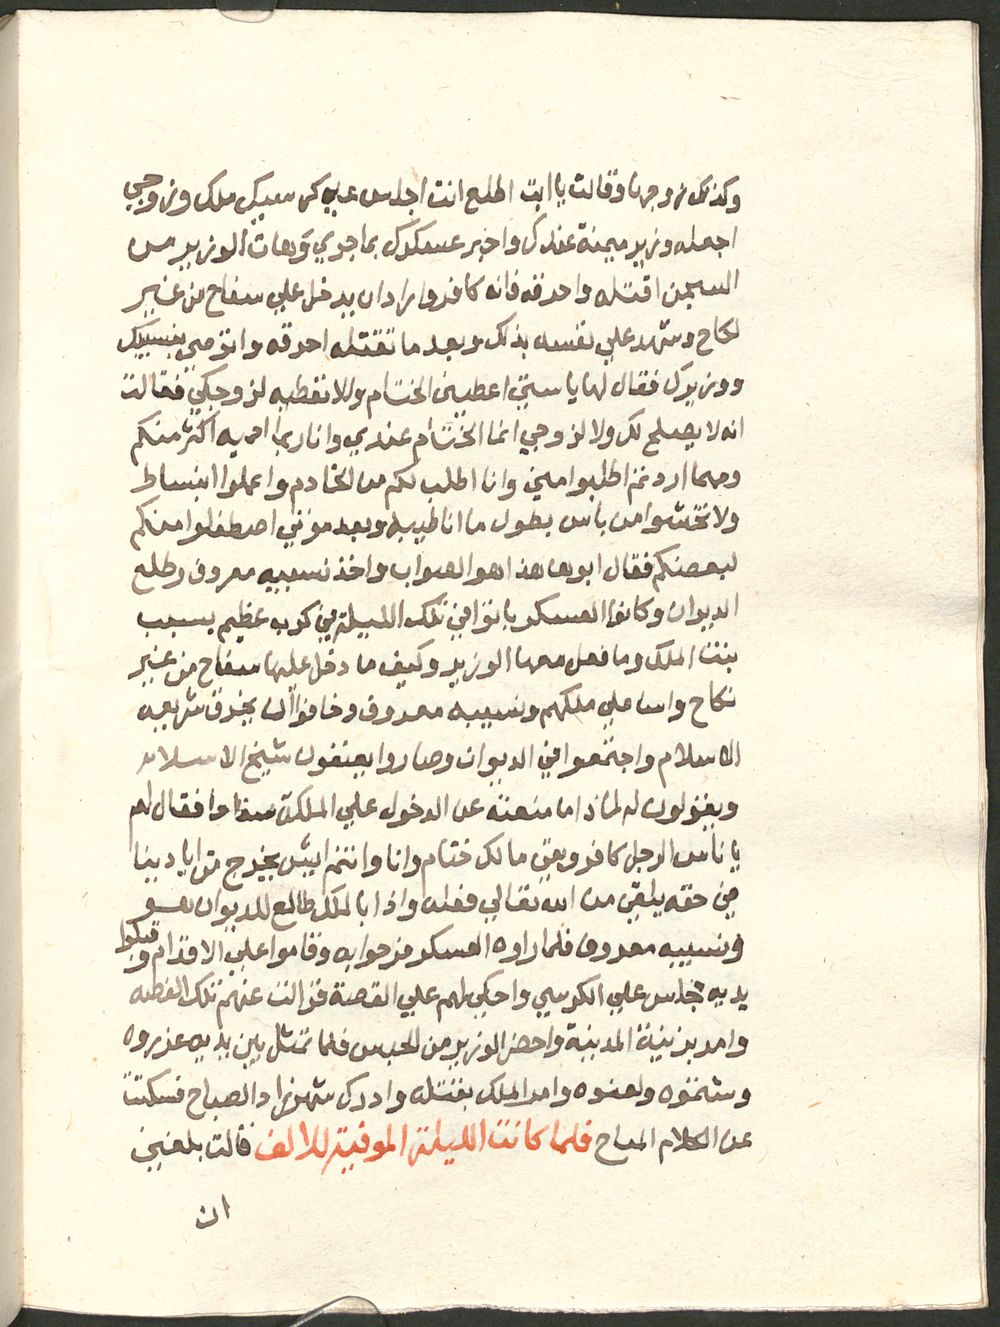 وكذلك زوجها وقالت يا ابت اطلع انت اجلس علي كرسييك ملك وزوجي
اجعله وزير ميمنة عندك واخبر عسكرك بما جري وهات الوزير من
السجن اقتله واحرقه فانه كافر واراد ان يدخل علي سفاح من غير
نكاح وشهد علي نفسه بذلك وبعد ما تقتله احرقه واتوصي بنسيبك
ووزيرك فقال لها يا ستي اعطيني الختام والا تعطيه لزوجكي فقالت
انه لا يصلح لك ولا لزوجي انما الختام عندي وانا ربما احميه اكثر منكم
ومهما اردتم اطلبوا مني وانا اطلب لكم من الخادم واعملوا انبساط
ولا تخشوا من باس بطول ما انا طيبه وبعد موتي اصطفلوا منكم
لبعضكم فقال ابوها هذا هو الصواب واخذ نسيبه معروف وطلع
الديوان وكانوا العسكر باتوا في تلك الليلة في كرب عظيم بسبب
بنت الملك وما فعل معها الوزير وكيف ما دخل عليها سفاح من غير
نكاح واسا علي ملكهم ونسيبه معروف وخافوا ان يخرق شريعه
الاسلام واجتمعوا في الديوان وصاروا يعنفون شيخ الاسلام
ويقولون له لماذا ما منعته عن الدخول علي الملكة سفاحا فقال لهم
يا ناس الرجل كافر وبقي مالك ختام وانا وانتم ايش يخرج من ايادينا
في حقه يلتقي من الله تعالي فعله واذا بالملك طالع للديوان هو
ونسيبه معروف فلما راوه العسكر فرحوا به وقاموا علي الاقدام وقبلوا
يديه جلس علي الكرسي واحكي لهم علي القصة فزالت عنهم تلك الغصه
وامر بزنية المدينة واحضر الوزير من الحبس فلما تمثل بين يديه عزروه
وشتموه ولعنوه وامر الملك بقتله وادرك شهرزاد الصباح فسكتت
عن الكلام المباح فلما كانت الليلة الموفية للالف قالت بلغني
ان